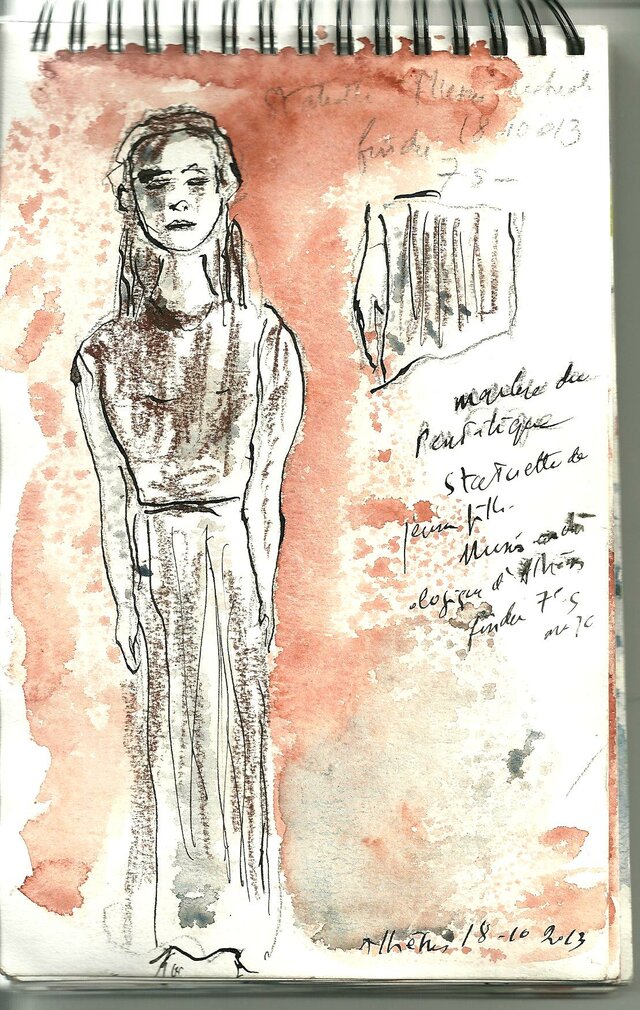 18-10 013
fin du
7 s -
marbre du
Pentélique
statuette de
jeune fille
Musée arché
ologique d'Athènes
fin du 7e s
av JC
Athènes 18-10 2013